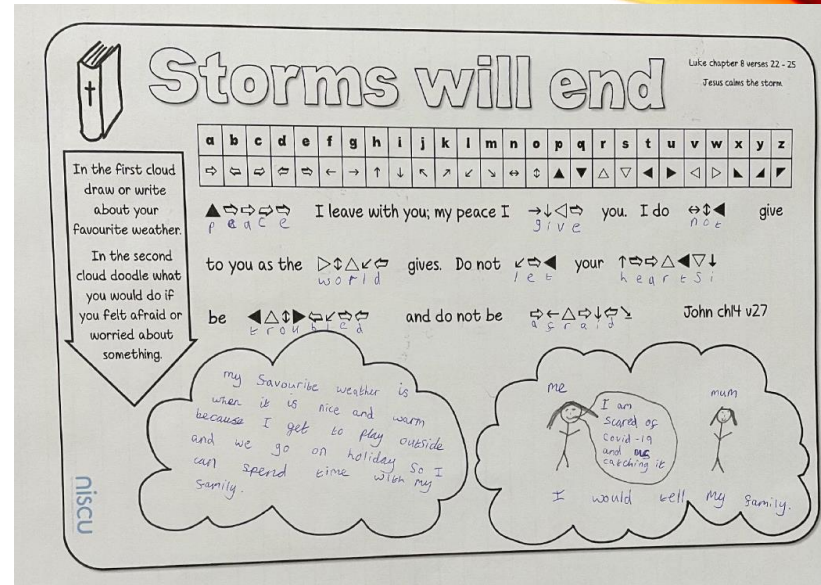 Storms will end
Luke chapter 8 verses 22 - 25
Jesus calms the storm
a b c d e f g h i j k l m n o p q r s t u v w x y z
⇨ ⇦ ⇨ ⇦ ⇨ ← → ↑ ↓ ↖ ↗ ↙ ↘ ↔ ↕ ▲ ▼ △ ▽ ◀ ▶ ◁ ▷ ◣ ◢ ◤
In the first cloud
draw or write
about your
favourite weather.
In the second
cloud doodle what
you would do if
you felt afraid or
worried about
something.
I leave with you; my peace I you. I do give
peace give not
to you as the gives. Do not your
world let heartsi
be and do not be John ch14 v27
troubled afraid
my favourite weather is
when it is nice and warm
because I get to play outside
and we go on holiday so I
can spend time with my
family.
me
mum
I am
scared of
Covid-19
and
catching it
I would tell my family.
niscu